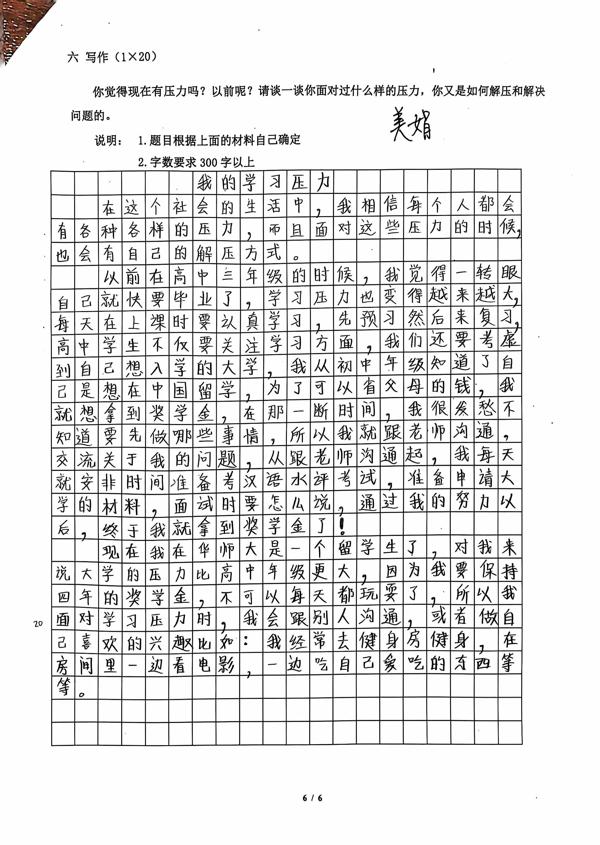 六 写作（1×20）
你觉得现在有压力吗？以前呢？请谈一谈你面对过什么样的压力，你又是如何解压和解决
问题的。
美娟
说明： 1.题目根据上面的材料自己确定
2.字数要求 300 字以上
我的学习压力
在这个社会的生活中，我相信每个人都会
有各种各样的压力，而且面对这些压力的时候，
也会有自己的解压方式。
以前在高中三年级的时候，我觉得一转眼
自己就快要毕业了，学习压力也变得越来越大，
每天在上课时要认真学习，先预习然后来复习，
高中学生不仅要关注学习方面，我们还要考虑
到自己想入学的大学，我从初中年级知道了自
己是想在中国留学，为了可以省父母的钱，我
就想拿到奖学金，在那一断时间，我很发愁不
知道要先做哪些事情，所以我就跟老师沟通，
交流关于我的问题，从跟老师沟通起，我每天
就安非时间准备考汉语水评考试，准备申请大
学的材料，面试时要怎么说，通过我的努力以
后，终于我就拿到奖学金了！
现在我在华师大是一个留学生了，对我来
说大学的压力比高中年级更大，因为我要保持
四年的奖学金，不可以每天都玩耍了，所以我
面对学习压力时，我会跟别人沟通，或者做自
20
己喜欢的兴趣比如：我经常去健身房健身，在
房间里一边看电影，一边吃自己爱吃的东西等
等。
6 / 6